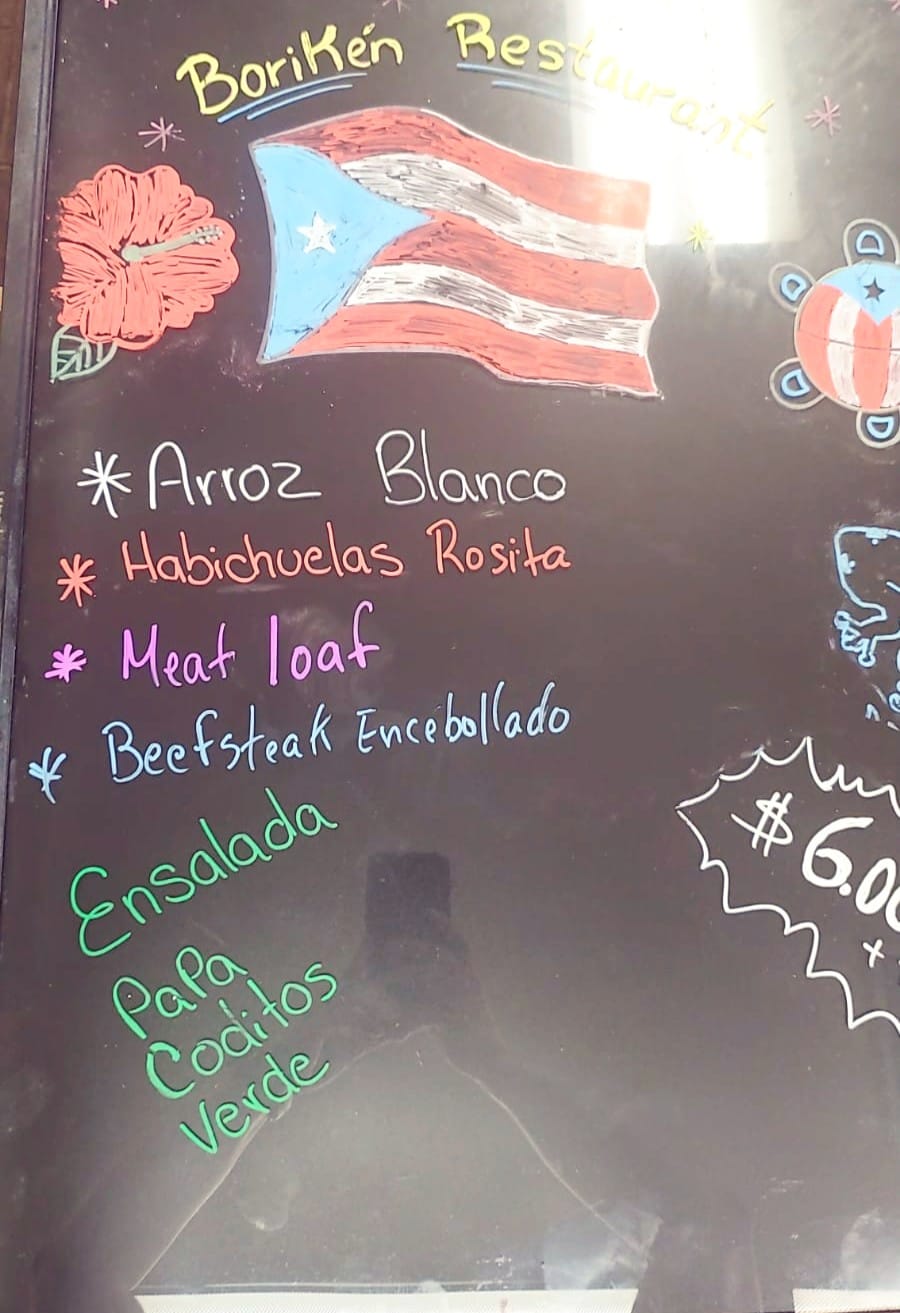 BoriKén Restaurant
* Arroz Blanco
* Habichuelas Rosita
* Meat loaf
* Beefsteak Encebollado
Ensalada
PaPa
Coditos
Verde
$6.00
+